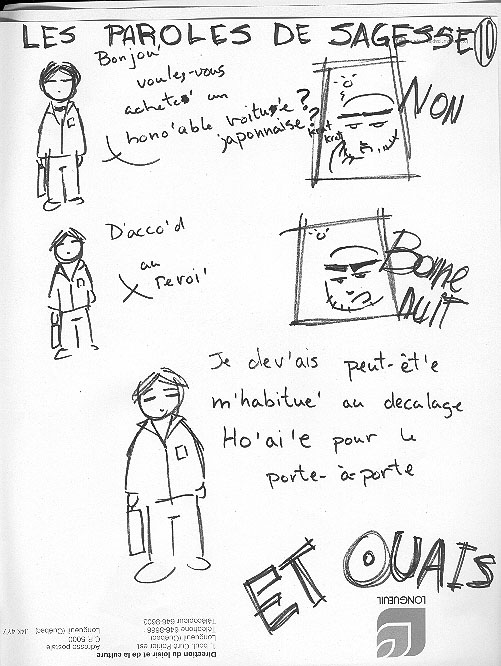 LES PAROLES DE SAGESSE 10
Bonjou'
voulez-vous
achete' un
hono'able voitu'e ?
japonnaise ?
krat
krat
NON
D'acco'd
au
revoi'
Bonne
NUIT
Je dev'ais peut-êt'e
m'habitue' au decalage
Ho'ai'e pour le
porte-à-porte
ET OUAIS
LONGUEUIL
Direction du loisir et de la culture
1, boul. Curé Poirier est
Longueuil (Québec)
Téléphone 646-8656
Télécopieur 646-8603
Adresse postale
C.P. 5000
Longueuil (Québec) J4K 4Y7